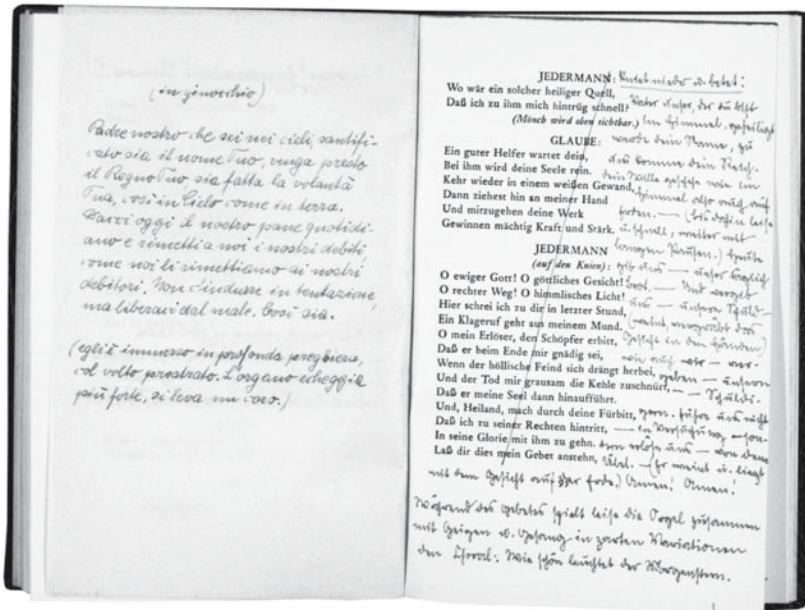 (in ginocchio)
Padre nostro che sei nei cieli, santifi-
cato sia il nome Tuo, venga presto
il Regno Tuo sia fatta la volontà
Tua, così in Cielo come in terra.
Dacci oggi il nostro pane quotidi-
ano e rimetti a noi i nostri debiti
come noi li rimettiamo ai nostri
debitori. Non c'indurre in tentazione,
ma liberaci dal male. Così sia.
(egli è immerso in profonda preghiera,
col volto prostrato. L'organo echeggia
più forte, si leva un coro.)
JEDERMANN:
Wo wär ein solcher heiliger Quell,
Daß ich zu ihm mich hintrüg schnell?
(Mönch wird oben sichtbar.)
GLAUBE:
Ein guter Helfer wartet dein,
Bei ihm wird deine Seele rein.
Kehr wieder in einem weißen Gewand,
Dann ziehest hin an meiner Hand
Und mirzugehen deine Werk
Gewinnen mächtig Kraft und Stärk.
JEDERMANN
(auf den Knien):
O ewiger Gott! O göttliches Gesicht!
O rechter Weg! O himmlisches Licht!
Hier schrei ich zu dir in letzter Stund,
Ein Klageruf geht aus meinem Mund.
O mein Erlöser, den Schöpfer erbitt,
Daß er beim Ende mir gnädig sei,
Wenn der höllische Feind sich drängt herbei,
Und der Tod mir grausam die Kehle zuschnürt,
Daß er meine Seel dann hinaufführt.
Und, Heiland, mach durch deine Fürbitt,
Daß ich zu seiner Rechten hintritt,
In seine Glorie mit ihm zu gehn.
Laß dir dies mein Gebet anstehn,
Kniet nieder u. betet:
Vater Unser, der du bist
im Himmel, geheiliget
werde dein Name, zu
uns komme dein Reich.
Dein Wille geschehe wie im
Himmel also auch auf
Erden. — (bis dahin leise
u. schnell, weiter mit
langen Pausen.) Heute
gib uns — unser täglich
Brot. — Und vergib
uns — unsere Schuld —
(weint, vergräbt das
Gesicht in den Händen)
wie auch wir — ver-
geben — unseren
— Schuldi-
gern. Führe uns nicht
— in Versuchung — son-
dern erlöse uns — von dem
Übel. — (Er weint u. liegt
mit dem Gesicht auf der Erde.) Amen! Amen!
Während des Gebetes spielt leise die Orgel zusammen
mit Geigen u. Gesang in zarten Variationen
den Choral: Wie schön leuchtet der Morgenstern.